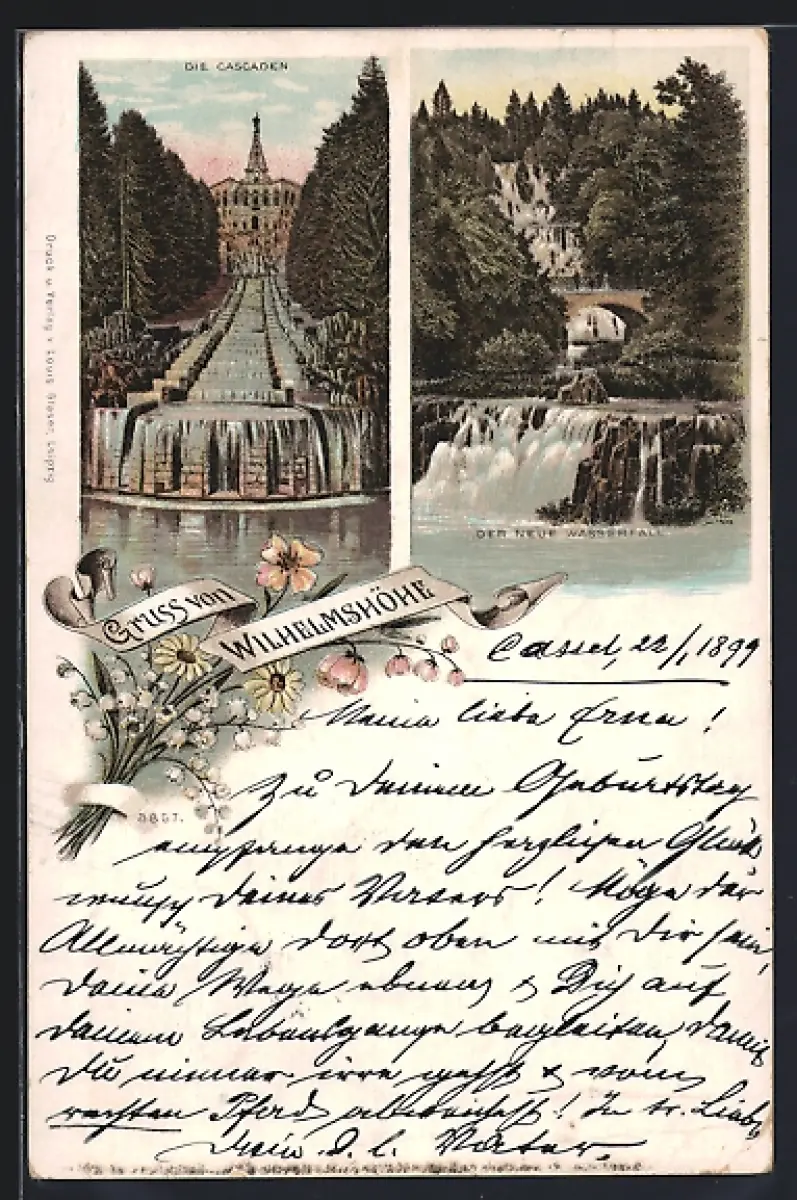 DIE CASCADEN
Druck u. Verlag v. Louis Glaser, Leipzig
DER NEUE WASSERFALL
Gruss von
WILHELMSHÖHE
3857.
Cassel, 22/1 1899
Meine liebe Erna!
Zu Deinem Geburtstag
empfange den herzlichen Glück
wunsch Deines Vaters! Möge der
Allmächtige dort oben mit Dir sein,
Deine Wege ebnen & Dich auf
Deinem Lebensgange begleiten, damit
Du nimmer irre gehst & vom
rechten Pfad abweichst! In tr. Liebe
Dein d. l. Vater.